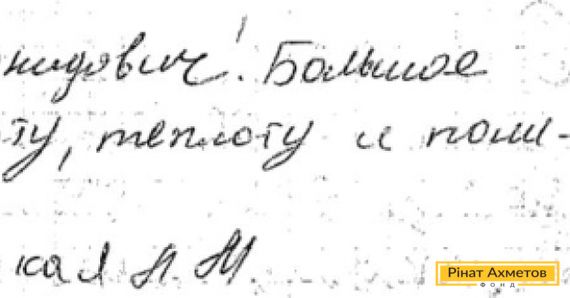 нидович! Большое
ту, теплоту и пони-
кая Л. М.
Рінат Ахметов
ФОНД